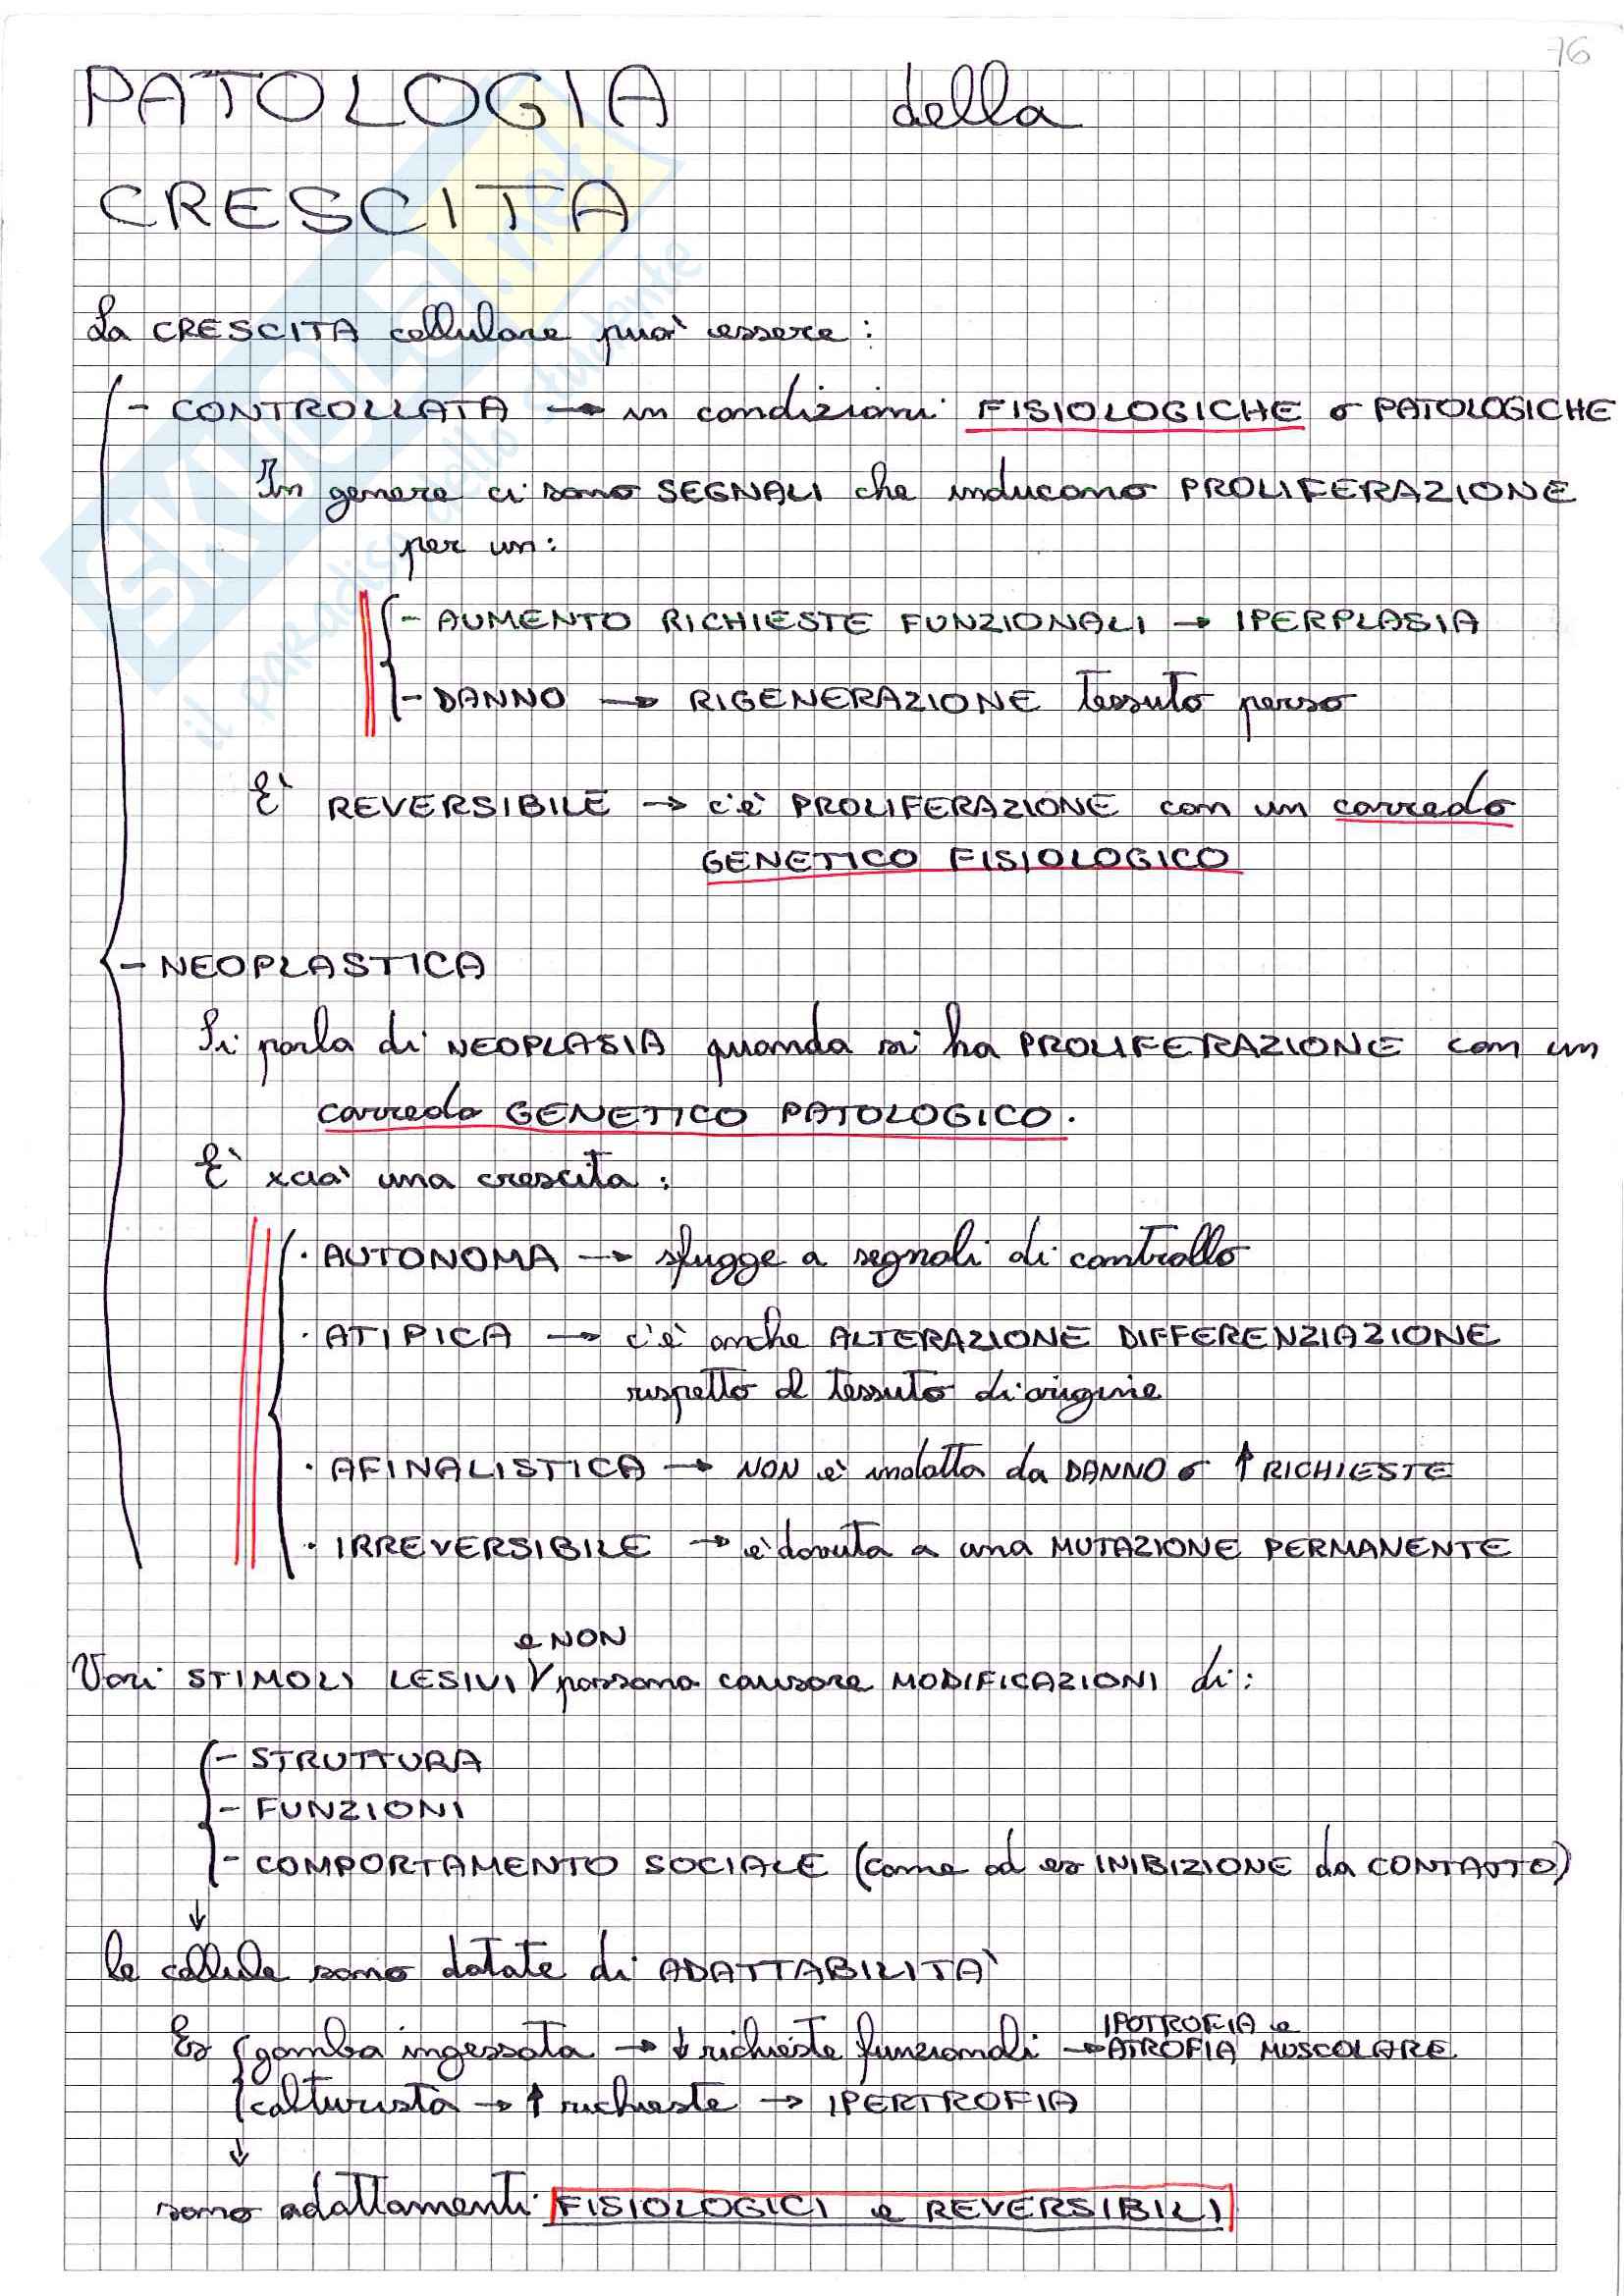 76
PATOLOGIA della
CRESCITA
La CRESCITA cellulare può essere:
- CONTROLLATA → in condizioni FISIOLOGICHE o PATOLOGICHE
In genere ci sono SEGNALI che inducono PROLIFERAZIONE
per un:
- AUMENTO RICHIESTE FUNZIONALI → IPERPLASIA
- DANNO → RIGENERAZIONE tessuto perso
E' REVERSIBILE → c'è PROLIFERAZIONE con un corredo
GENETICO FISIOLOGICO
- NEOPLASTICA
Si parla di NEOPLASIA quando si ha PROLIFERAZIONE con un
corredo GENETICO PATOLOGICO.
E' xciò una crescita:
· AUTONOMA → sfugge a segnali di controllo
· ATIPICA → c'è anche ALTERAZIONE DIFFERENZIAZIONE
rispetto al tessuto di origine
· AFINALISTICA → NON è indotta da DANNO o ↑ RICHIESTE
· IRREVERSIBILE → è dovuta a una MUTAZIONE PERMANENTE
e NON
Vari STIMOLI LESIVI possono causare MODIFICAZIONI di:
- STRUTTURA
- FUNZIONI
- COMPORTAMENTO SOCIALE (come ad es INIBIZIONE da CONTATTO)
↓
le cellule sono dotate di ADATTABILITA'
IPOTROFIA e
Es gamba ingessata → ↓ richieste funzionali → ATROFIA MUSCOLARE
culturista → ↑ richieste → IPERTROFIA
↓
sono adattamenti FISIOLOGICI e REVERSIBILI
SKUOLA.net
il paradiso dello studente